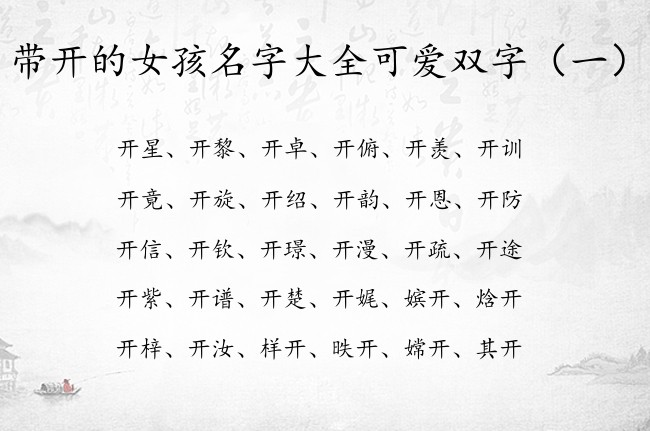 带开的女孩名字大全可爱双字（一）
开星、开黎、开卓、开俯、开羡、开训
开竟、开旋、开绍、开韵、开恩、开防
开信、开钦、开璟、开漫、开疏、开途
开紫、开谱、开楚、开娓、嫔开、焓开
开梓、开汝、样开、昳开、嫦开、其开